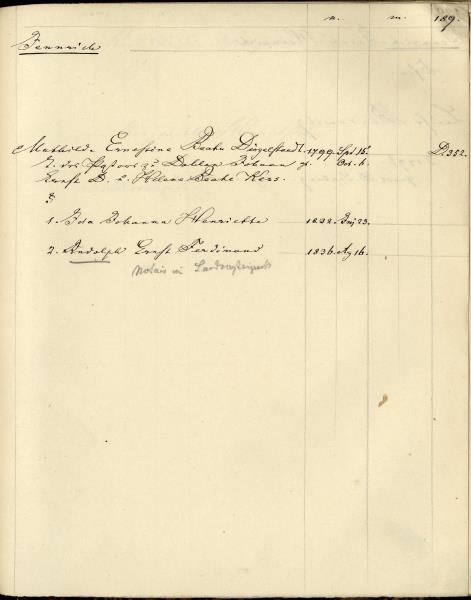 n. m. 189.
Fennrich
Mathilde Ernestine Beate Dingelstaedt. 1799. Spt 15. D. 352.
T. des Pastors zu Dallen Johann g. Oct. 6.
Ernst D. u. Helene Beate
1. Ida Johanna Henriette 1832. Jnj 23.
2. Rudolph Ernst Ferdinand 1836. Ag 16.
Notair in